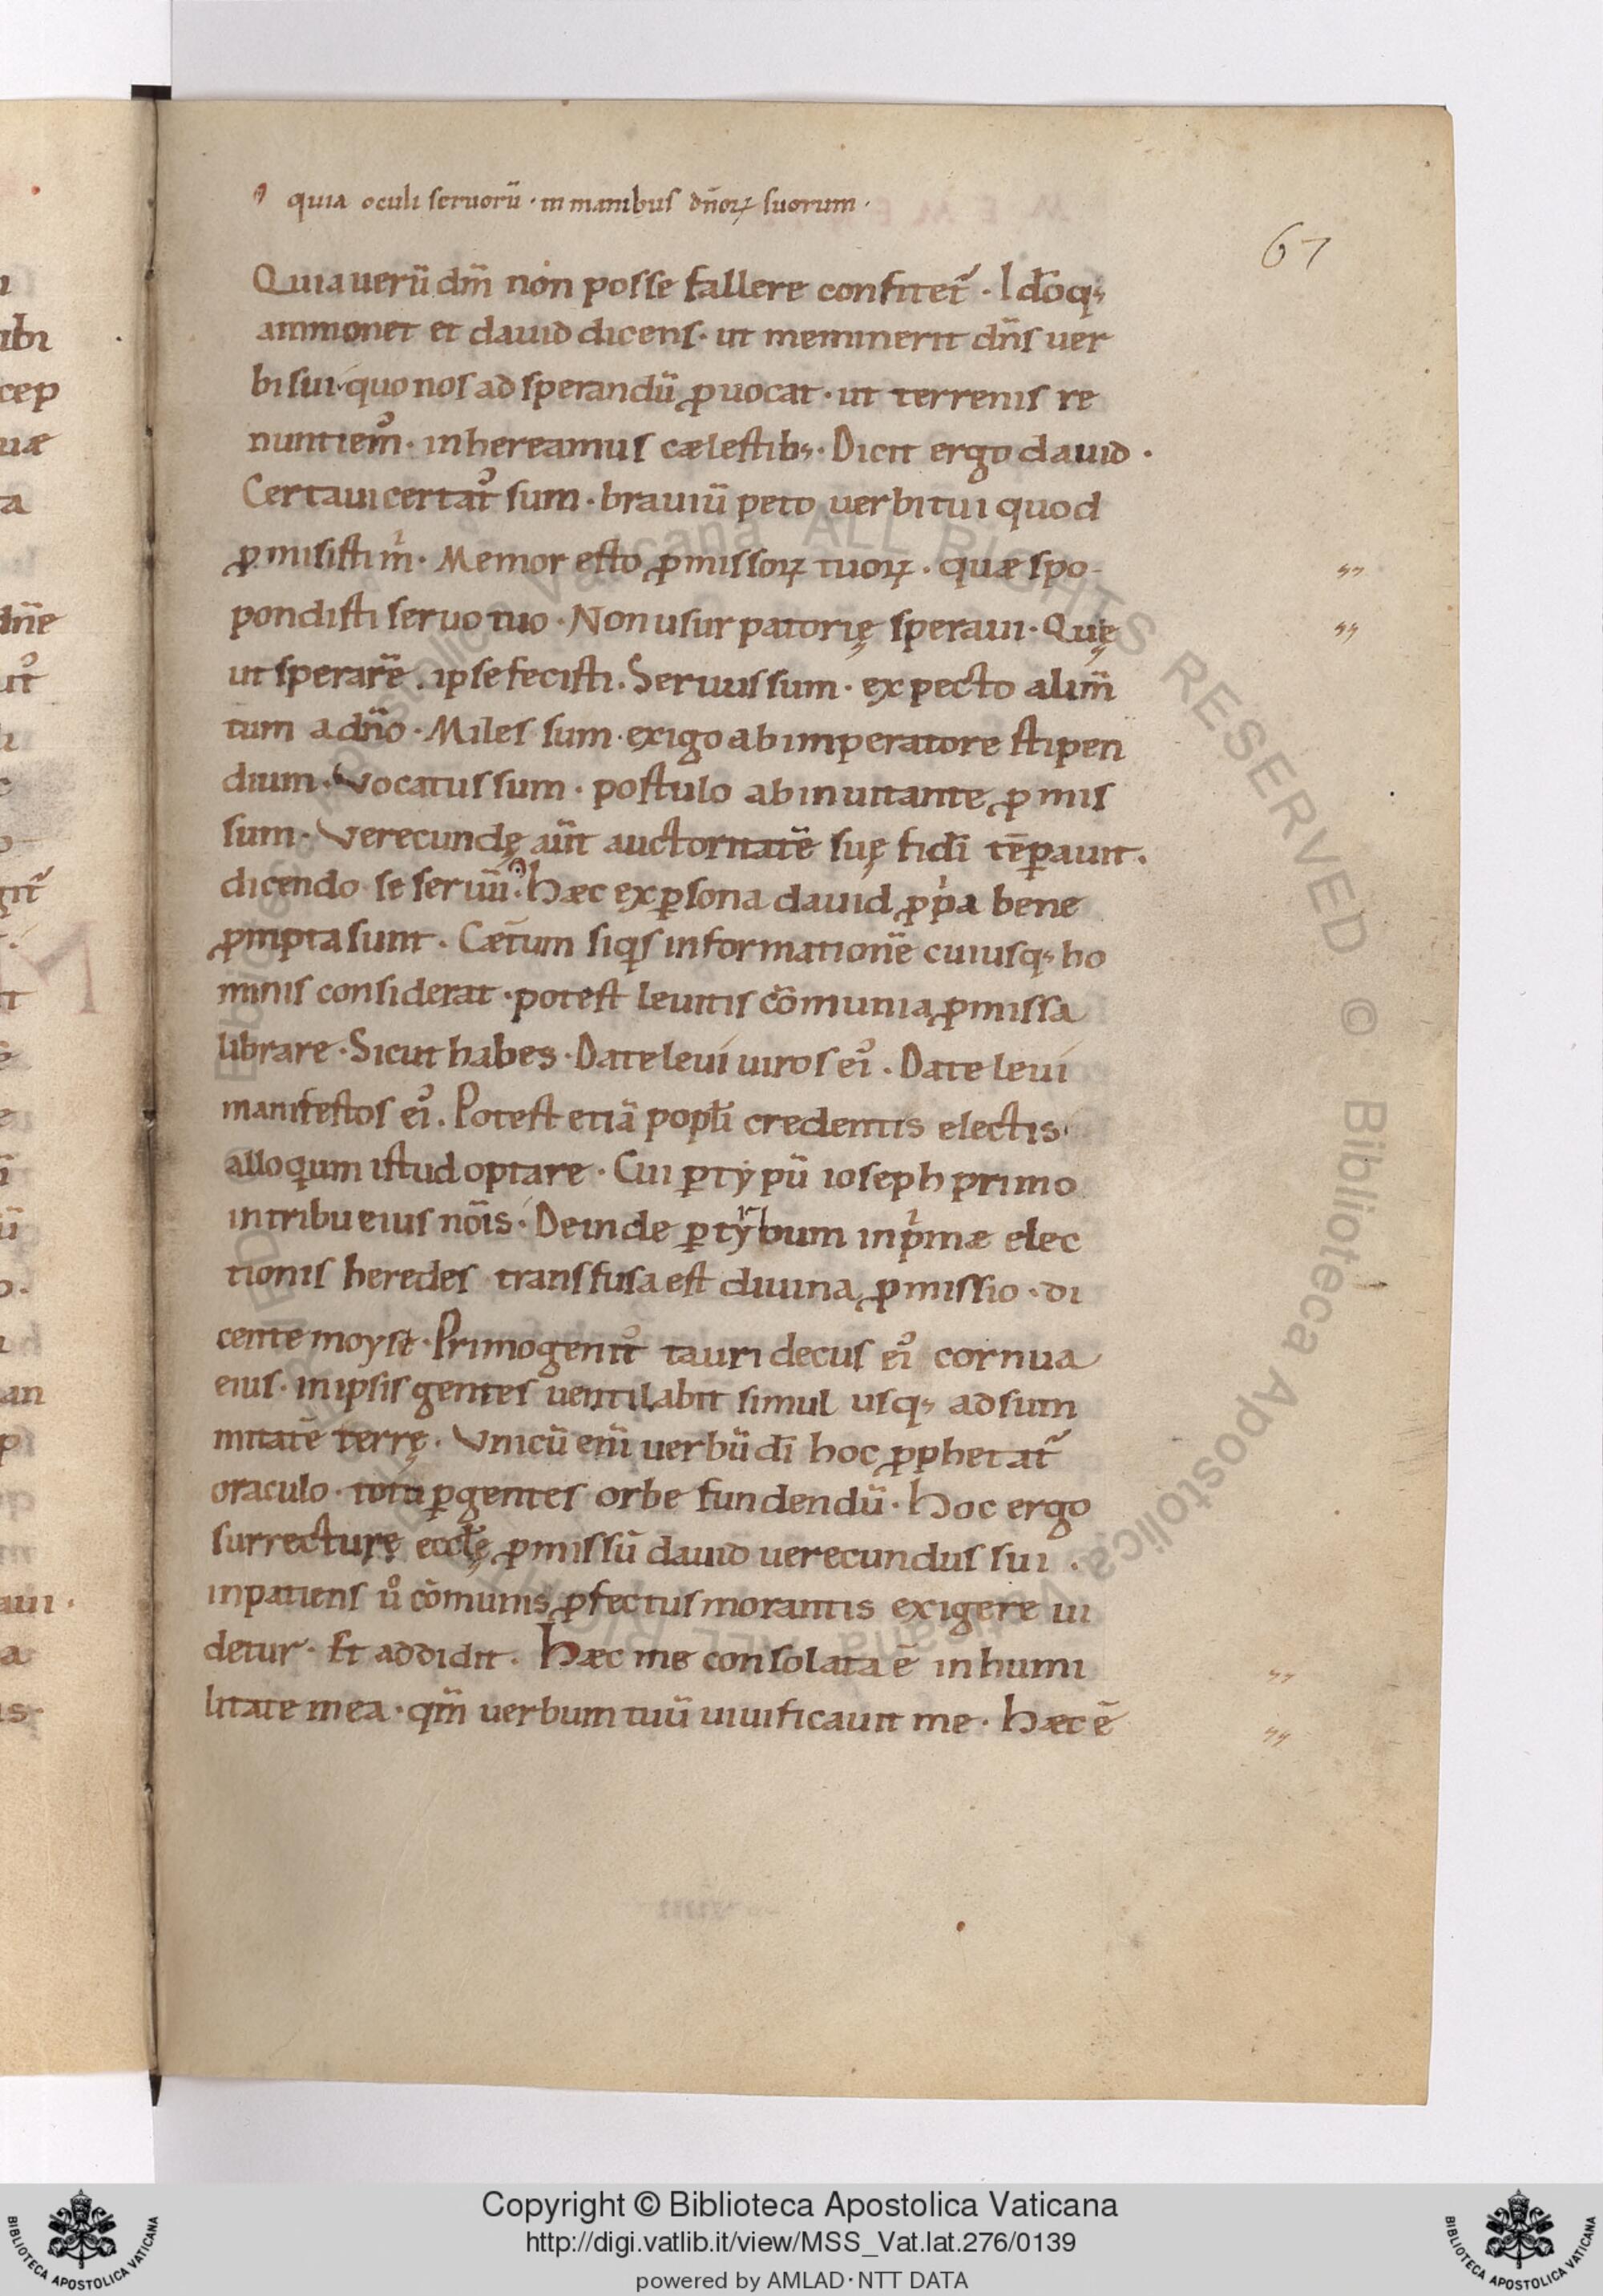 quia oculi seruorū · in manibus dn̄oꝝ suorum ·
67
Quia uerū dm̄ non posse fallere confitet᷑ · Idcoq;
ammonet et dauid dicens · ut meminerit dn̄s uer
bi sui · quo nos ad sperandū ꝓuocat · ut terrenis re
nuntiem᾽ · inhereamus cælestib; · Dicit ergo dauid ·
Certaui certat᾽ sum · brauiū peto uerbi tui quod
ꝓmisisti m̍ · Memor esto ꝓmissoꝝ tuoꝝ · quæ spo-
pondisti seruo tuo · Non usurpatorię speraui · Quę
ut sperarē · ipse fecisti · Seruus sum · expecto alim̄
tum a dn̄o · Miles sum · exigo ab imperatore stipen
dium · Vocatus sum · postulo ab inuitante ꝓmis
sum · Verecundę aūt auctoritatē suę fidi tēꝑauit ·
dicendo se seruū · Hæc ex ꝑsona dauid ꝓp̍a bene
ꝓmpta sunt · Cæt̄um siq̍s informationē cuiusq; ho
minis considerat · potest leuitis cōmunia ꝓmissa
librare · Sicut habes · Date leui uiros ei᾽ · Date leui
manifestos ei᾽ · Potest etiā popl̄i credentis electis
alloq̍um istud optare · Cui ꝑ typū ioseph primo
in tribu eius nōis · Deinde ꝑ tybum in p̍mæ elec
tionis heredes transfusa est diuina ꝓmissio · di
cente moyse · Primogenit᾽ tauri decus ei᾽ cornua
eius · in ipsis gentes uentilabit simul usq; ad sum
mitatē terrę · Vnicū eni᷑ uerbū dī hoc ꝓphetat᷑
oraculo · toto ꝑ gentes orbe fundendū · Hoc ergo
surrecturę eccl̄ę ꝓmissū dauid uerecundus sui ·
inpatiens uͦ cōmunis ꝓfectus morantis exigere ui
detur · Et addidit · Hæc me consolata ē in humi
litate mea · qm̄ uerbum tuū uiuificauit me · Hæc ē
Copyright © Biblioteca Apostolica Vaticana
http://digi.vatlib.it/view/MSS_Vat.lat.276/0139
powered by AMLAD·NTT DATA